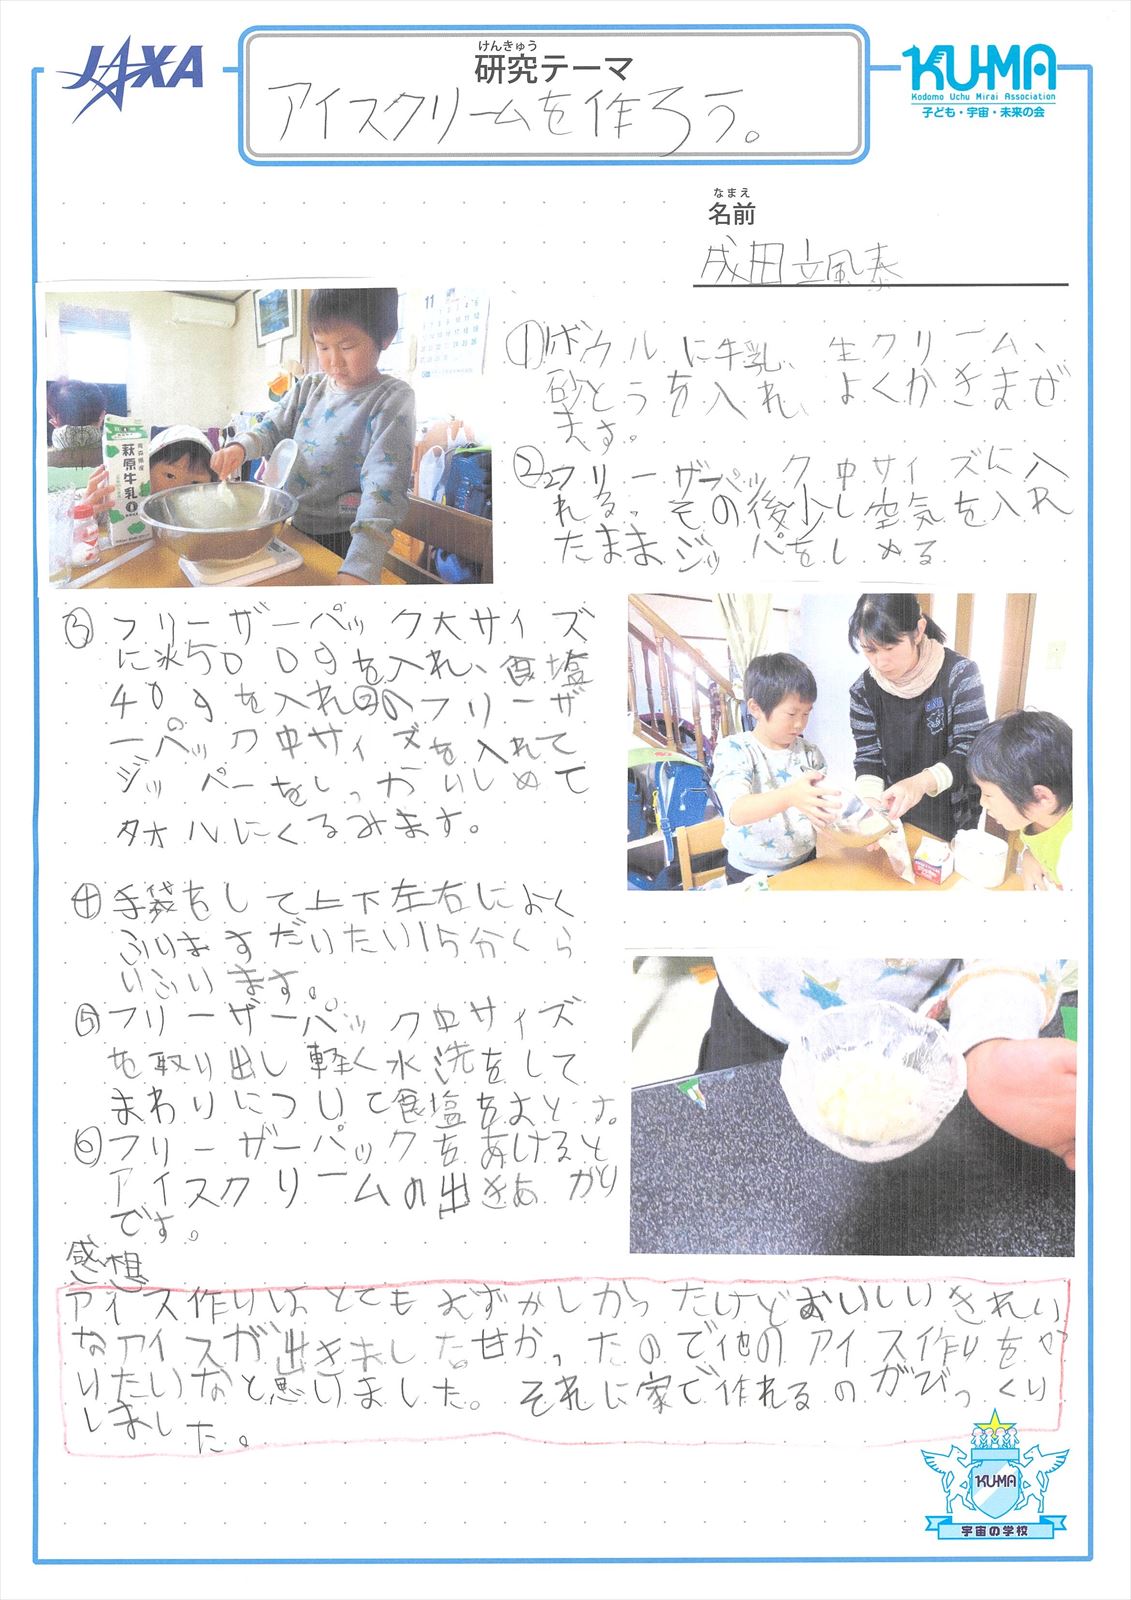 JAXA
けんきゅう
研究テーマ
アイスクリームを作ろう。
KU-MA
Kodomo Uchu Mirai Association
子ども・宇宙・未来の会
なまえ
名前
成田 颯泰
11
萩原牛乳
①ボウルに牛乳、生クリーム、
砂とうを入れ、よくかきまぜ
ます。
②フリーザーパック中サイズに入
れる。その後少し空気を入れ
たままジッパをしめる
③フリーザーパック大サイズ
に氷500gを入れ、食塩
40gを入れ②のフリーザ
ーパック中サイズを入れて
ジッパーをしっかりしめて
タオルにくるみます。
④手袋をして上下左右によく
ふりますだいたい15分くら
いふります。
⑤フリーザーパック中サイズ
を取り出し軽く水洗をして
まわりについて食塩をおとす。
⑥フリーザーパックをあけると
アイスクリームの出きあがり
です。
感想
アイス作りはとてもむずかしかったけどおいしいきれい
なアイスが出きました。甘かったので他のアイス作りをや
りたいなと思いました。それに家で作れるのがびっくり
しました。
KU-MA
宇宙の学校